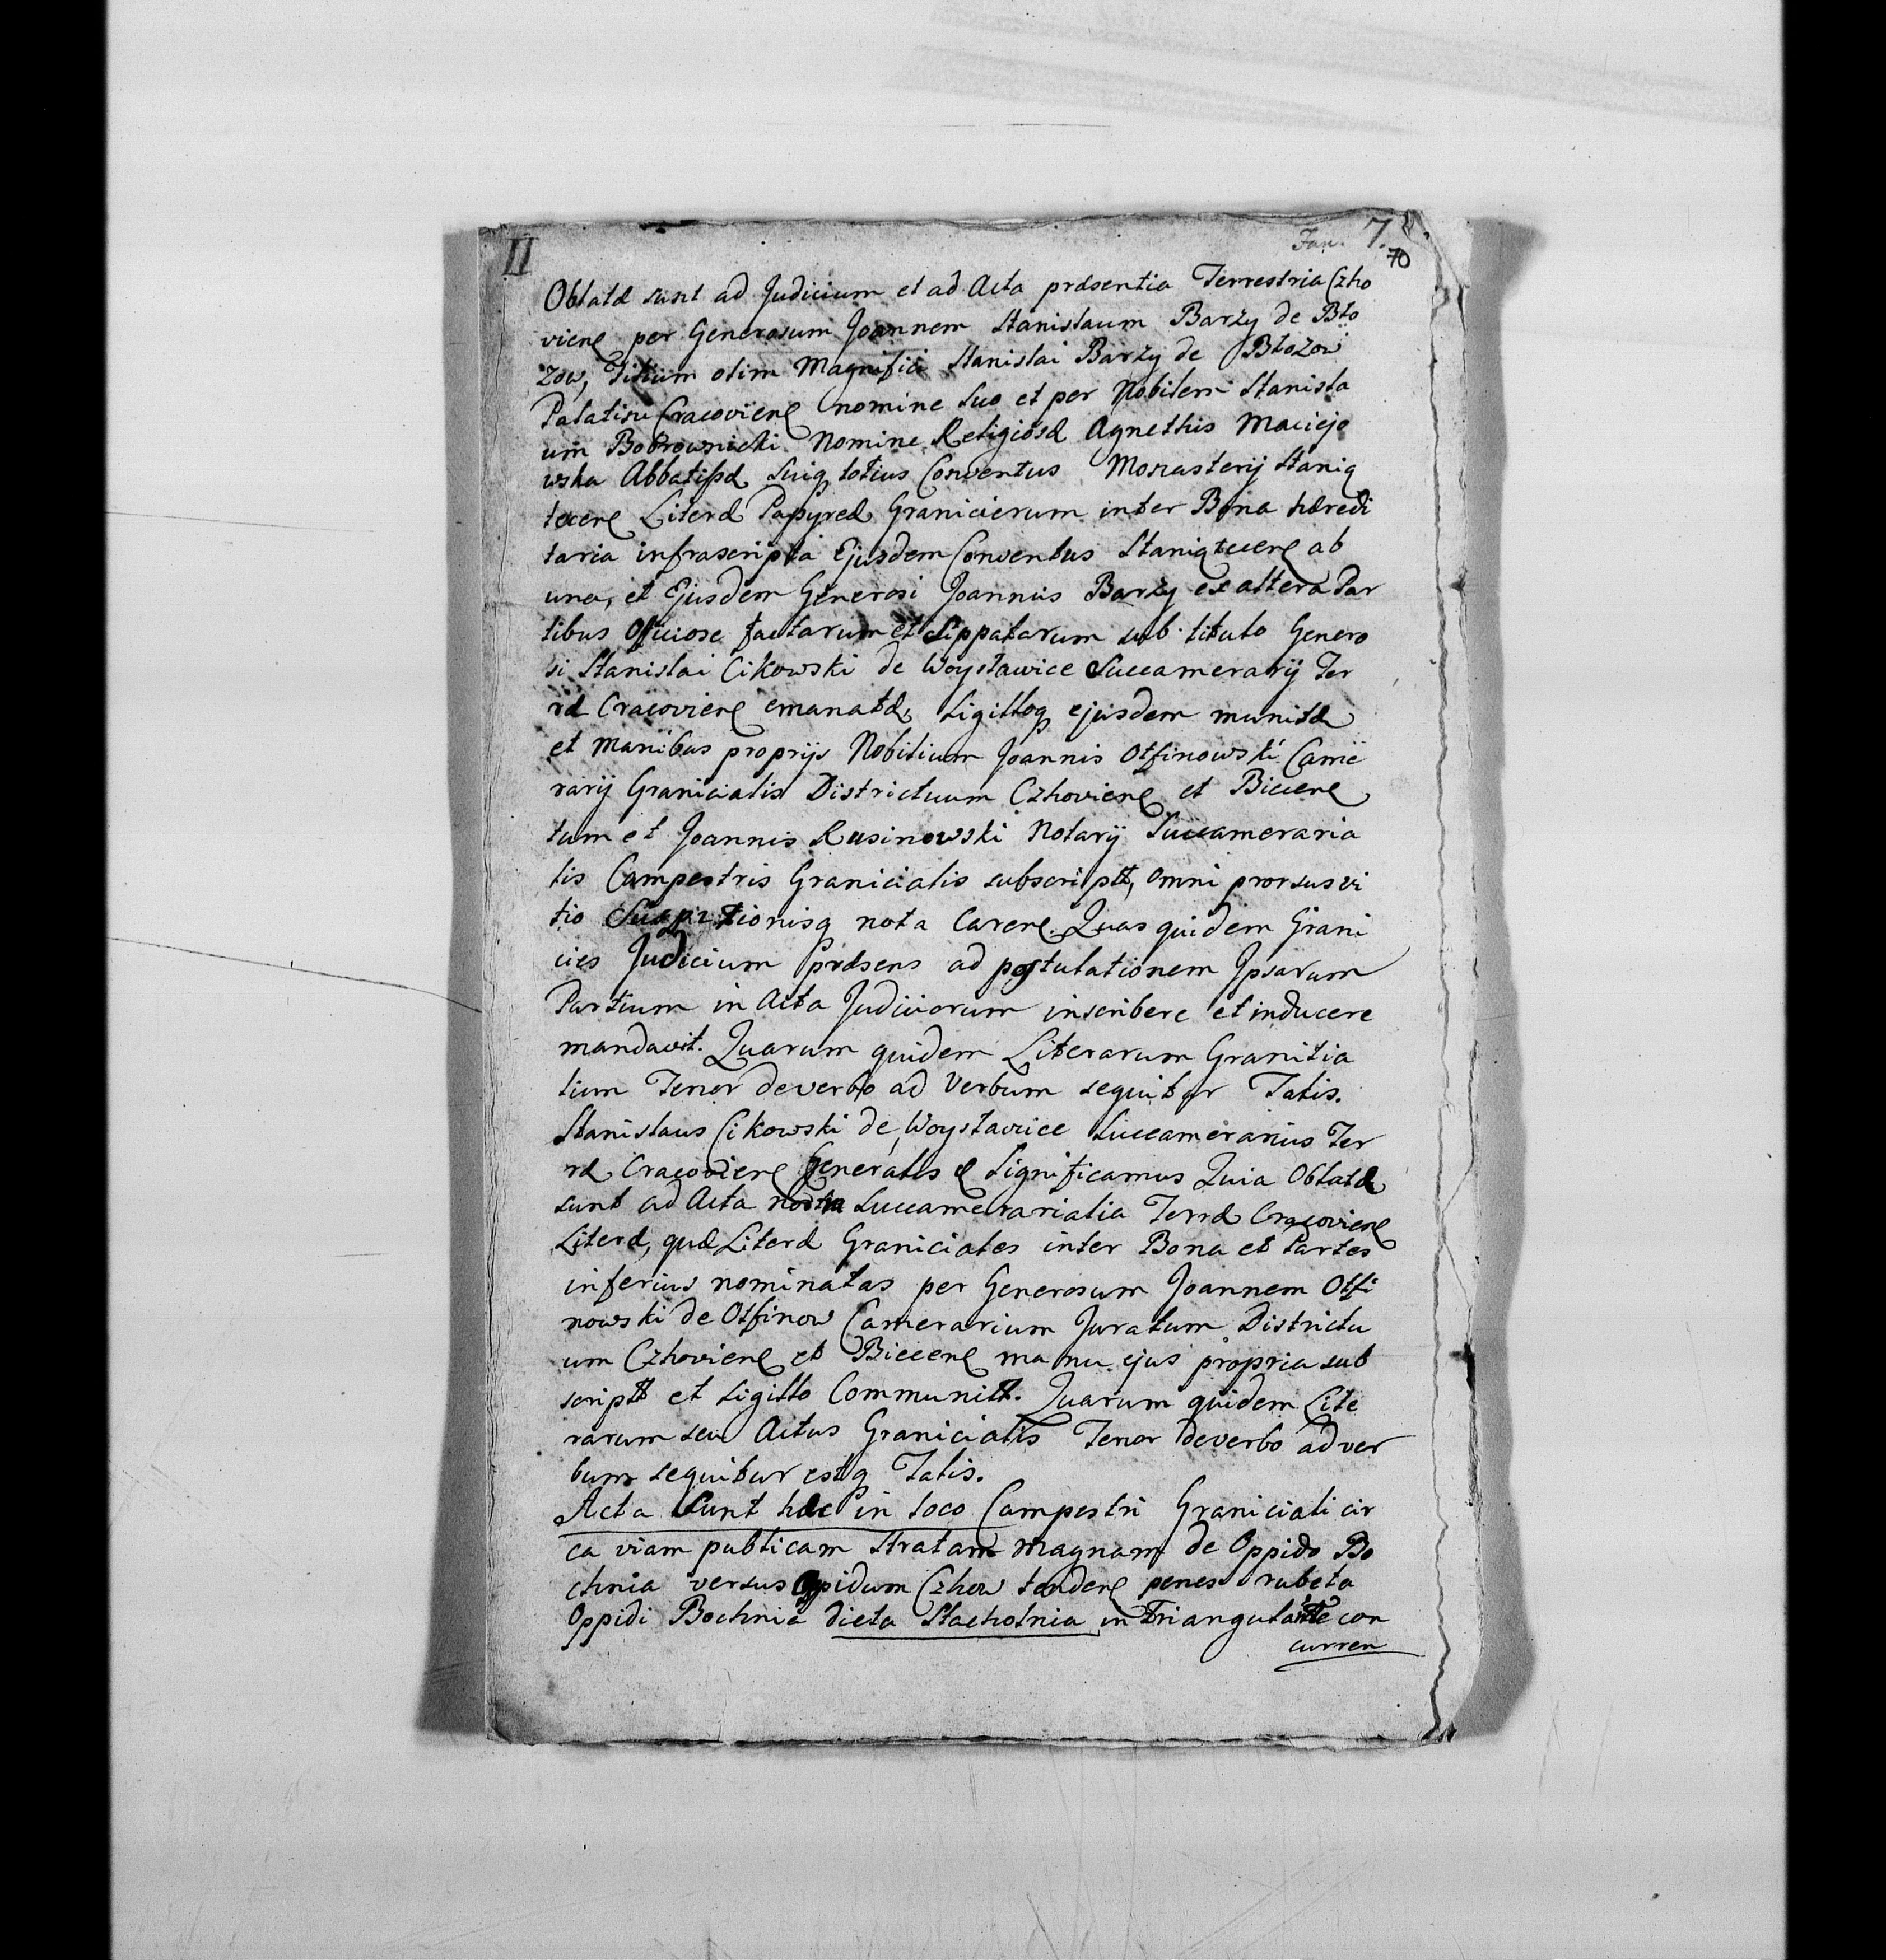 II
Fan. 7.
70
Oblatæ sunt ad Judicium et ad Acta præsentia Terrestria Czho
vień per Generosum Joannem Stanislaum Barzy de Bło
zow, Filium olim Magnifici Stanislai Barzy de Błozow
Palatini Cracovień nomine suo et per Nobilem Stanisla
um Bobrownicki Nomine Religiosæ Agnethis Maciejo
wska Abbatissæ suiq totius Conventus Monasterij Staniq
tecen Literæ Papyreæ Granicierum inter Bona hæredi
taria infrascripta Ejusdem Conventus Staniqtecen ab
una, et Ejusdem Generosi Joannis Barzy ex altera Par
tibus Officiose factarum et Sippatarum sub titulo Genero
si Stanislai Cikowski de Woysławice Succamerarij Ter
ræ Cracovień emanatæ, Sigilloq ejusdem munitæ
et manibus proprijs Nobilium Joannis Otfinowski Came
rarij Granicialis Districtuum Czhovień et Biecen
tum et Joannis Rusinowski Notarij Succameraria
lis Campestris Granicialis subscriptt, omni prorsus vi
tio Suspitionisq nota Caren. Quas quidem Grani
cies Judicium præsens ad postulationem Ipsarum
Partium in Acta Judiciorum inscribere et inducere
mandavit. Quarum quidem Literarum Granitia
lium Tenor de verbo ad Verbum sequitur Talis.
Stanislaus Cikowski de Woysławice Succamerarius Ter
ræ Cracovień Generalis & Significamus Quia Oblatæ
sunt ad Acta nostra Succamerarialia Terræ Cracovień
Literæ, quæ Literæ Graniciales inter Bona et Partes
inferius nominatas per Generosum Joannem Otfi
nowski de Otfinow Camerarium Juratum Districtu
um Czhovień et Biecen manu ejus propria sub
scriptt et Sigillo Communitt. Quarum quidem Lite
rarum seu Actus Granicialis Tenor de verbo ad ver
bum sequitur estq Talis.
Acta Sunt hæc in loco Campestri Graniciali cir
ca viam publicam Stratam magnam de Oppido Bo
chnia versus Opidum Czhow tenden penes rubeta
Oppidi Bochnia dicta Stacholnia in Triangula con
curren